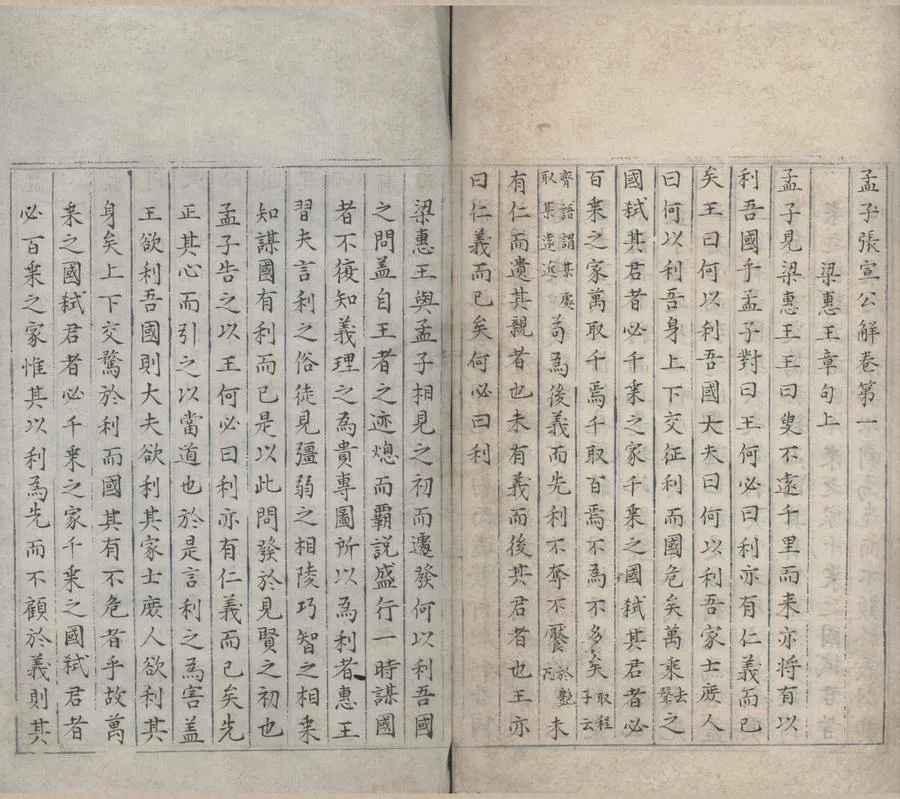 孟子張宣公解卷第一
梁惠王章句上
孟子見梁惠王王曰叟不遠千里而来亦将有以
利吾國乎孟子對曰王何必曰利亦有仁義而已
矣王曰何以利吾國大夫曰何以利吾家士庻人
曰何以利吾身上下交征利而國危矣萬乗去聲之
國弑其君者必千乗之家千乗之國弑其君者必
百乗之家萬取千焉千取百焉不為不多矣取程子云
齊語謂某處取某遠近苟為後義而先利不奪不饜於艷反未
有仁而遺其親者也未有義而後其君者也王亦
曰仁義而已矣何必曰利
梁惠王與孟子相見之初而遽發何以利吾國
之問盖自王者之迹熄而霸説盛行一時謀國
者不復知義理之為貴專圖所以為利者惠王
習夫言利之俗徒見彊弱之相陵巧智之相乗
知謀國有利而已是以此問發於見賢之初也
孟子告之以王何必曰利亦有仁義而已矣先
正其心而引之以當道也於是言利之為害盖
王欲利吾國則大夫欲利其家士庻人欲利其
身矣上下交騖於利而國其有不危者乎故萬
乗之國弑君者必千乗之家千乗之國弑君者
必百乗之家惟其以利為先而不顧於義則其